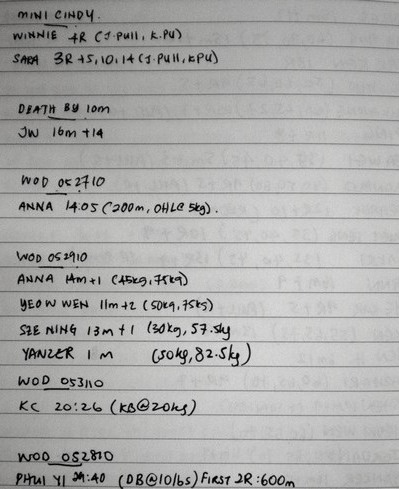 MINI CINDY.
WINNIE 4R (J.PULL, K.PU)
SARA 3R+5,10,14 (J.PULL, KPU)
DEATH BY 10m
JW 16m +14
WOD 052710
ANNA 14.05 (200m, OHL@ 5kg).
WOD 052910
ANNA 14m+1 (45kg, 75kg)
YEOW WEN 11m+2 (50kg, 75kg)
SZE NING 13m+1 (30kg, 57.5kg
YANZER 1 m (50kg, 82.5kg)
WOD 053110
KC 20:26 (KB@20kg)
WOD 052810
PHUI YI :40 (DB@10lbs) FIRST 2R:600m